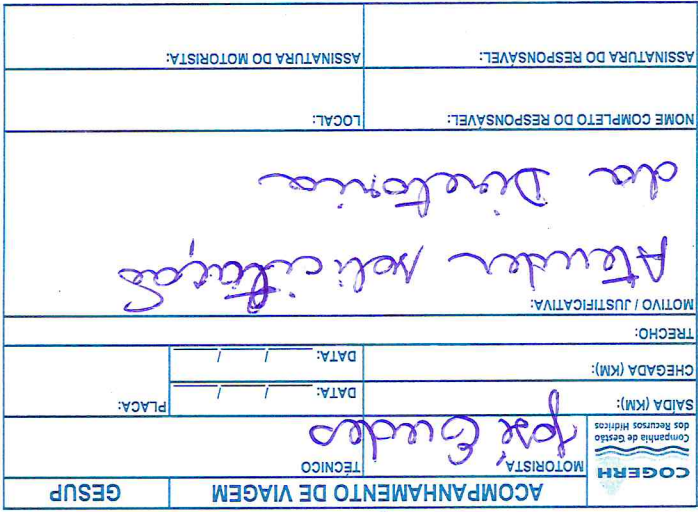 COGERH
Companhia de Gestão
dos Recursos Hídricos
ACOMPANHAMENTO DE VIAGEM
GESUP
MOTORISTA
TÉCNICO
José Eudes
SAIDA (KM):
DATA: ____/____/____
PLACA:
CHEGADA (KM):
DATA: ____/____/____
TRECHO:
MOTIVO / JUSTIFICATIVA:
Atender solicitação
da Diretoria
NOME COMPLETO DO RESPONSÁVEL:
LOCAL:
ASSINATURA DO RESPONSÁVEL:
ASSINATURA DO MOTORISTA: